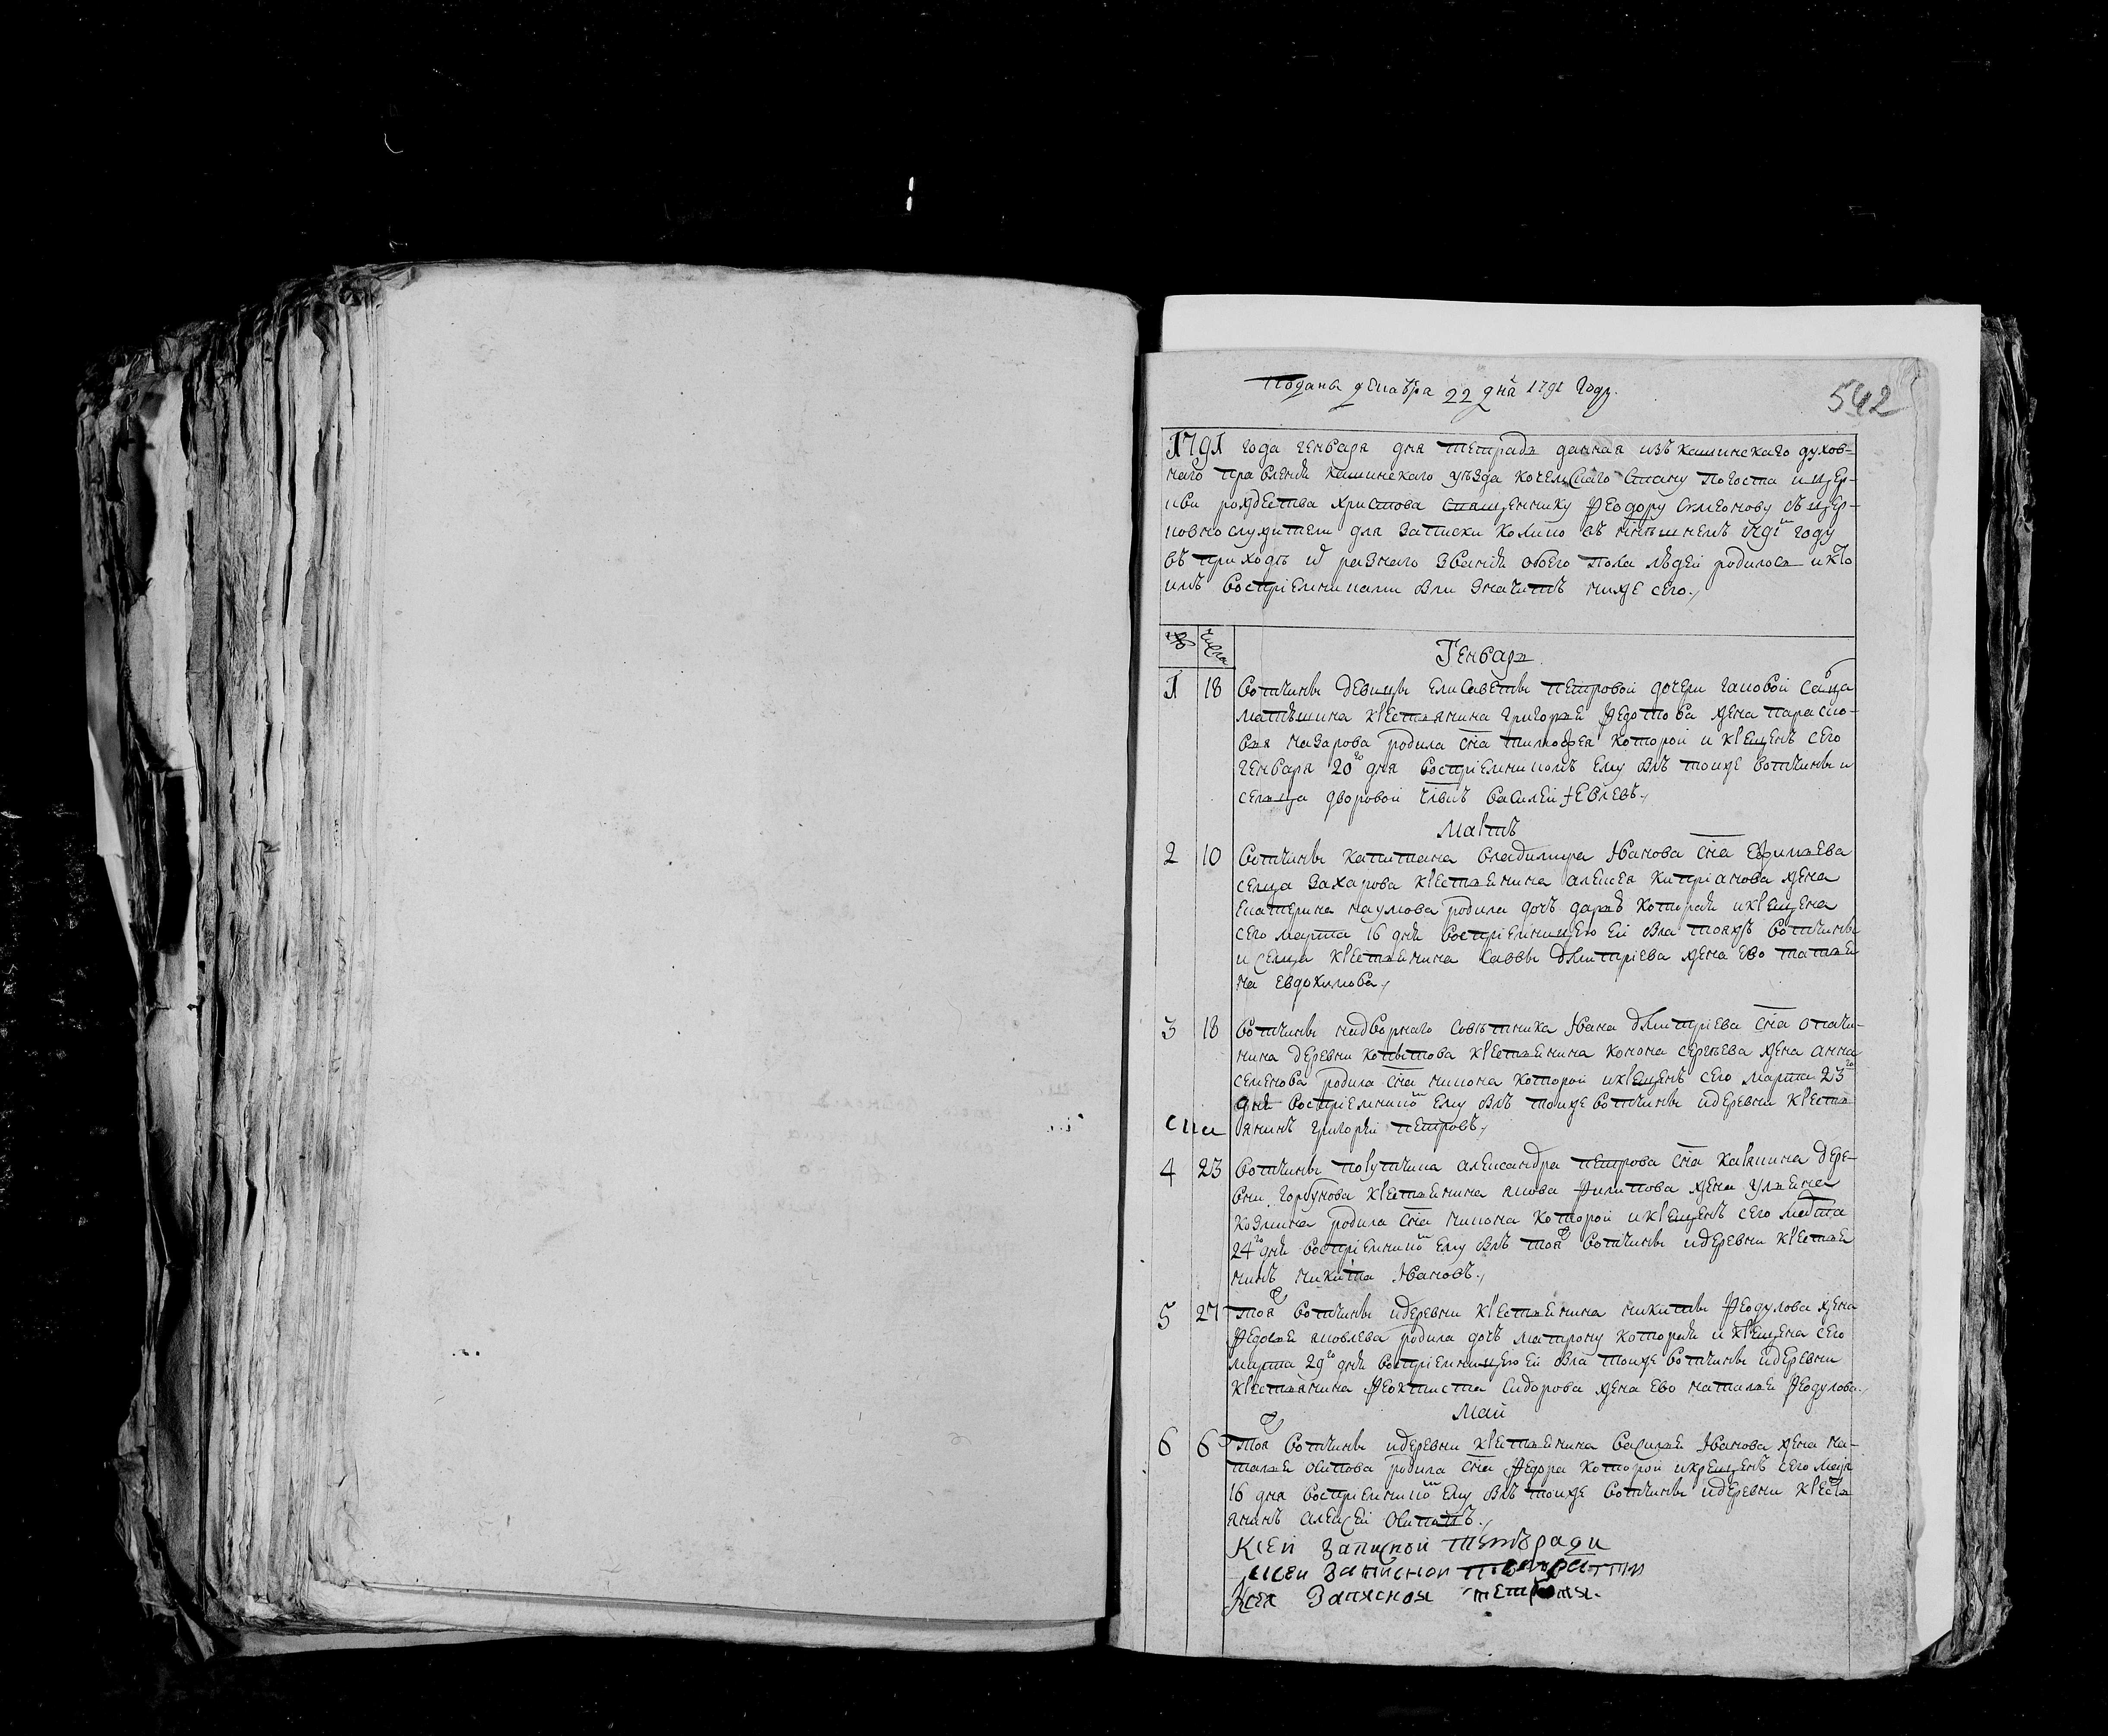 Поданы декабря 22 дня 1791 году.
542
1791 года генваря дня тетрадь данная изъ кашинскаго духов=
наго правления кашинскаго уезда кочемскаго стану погоста и цер-
кви рождества христова священнику феодору симеонову съ цер-
ковно служители для записки колико въ нынешнемъ 1791м году
въ приходе и разнаго звания обоего пола людей родилось и кто
имъ восприемниками были значитъ ниже сего.
№ числа
Генварь
1 18 вотчины девицы елисаветы петровой дочери сельца
матюшина крестьянина григорья федотова жена параско-
вья назарова родила сна тимофея которой и крещенъ сего
генваря 20го дня восприемникомъ ему былъ тоиже вотчины и
сельца дворовой члвкъ василей іевлевъ.
Мартъ
2 10 вотчины капитана владимира іванова сна ефимьева
селца захарова крестьянина алексея киприанова жена
екатерина наумова родила дочь дарью которая и крещена
сего марта 16 дня восприемницею ей была тояжъ вотчины
и селца крестьянина саввы дмитриева жена ево татья
на евдокимова.
3 18 вотчины надворнаго советника івана дмитриева сна опачи-
нина деревни копытова крестьянина конона сергеева жена анна
семенова родила сна никона которой и крещенъ сего марта 23го
дня восприемником ему былъ тоиже вотчины и деревни кресть
янинъ григорей петровъ.
4 23 вотчины порутчика александра петрова сна карякина дере-
вни горбунова крестьянина якова филипова жена ульяна
козмина родила сна никона которой и крещенъ сего марта
24го дня восприемником ему былъ тояж вотчины и деревни крестья
нинъ никита івановъ.
5 27 тояж вотчины и деревни крестьянина никиты феодулова жена
федосья яковлева родила дочь матрону которая и крещена сего
марта 29го дня восприемницею ей была тоиже вотчины и деревни
крестьянина феоктиста сидорова жена ево наталья феодулова.
Май
6 6 тояж вотчины и деревни крестьянина василья іванова жена на-
талья осипова родила сна федора которой и крещенъ сего мая
16 дня восприемником ему былъ тоиже вотчины и деревни кресть
янинъ алексей
К сей записной тетради
к сей записной тетрати
К сей записной